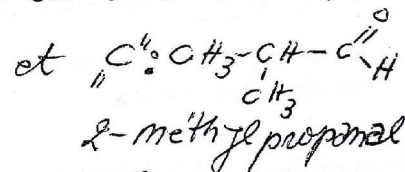 et "C": CH3-CH-C=O
H
CH3
2-méthylpropanal